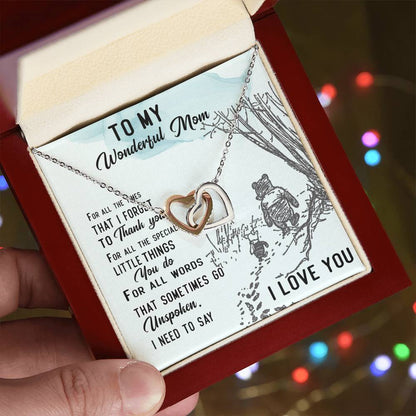 TO MY
Wonderful Mom
FOR ALL THE TIMES
THAT I FORGET
TO Thank you
FOR ALL THE SPECIAL
LITTLE THINGS
You do
FOR ALL WORDS
THAT SOMETIMES GO
Unspoken.
I NEED TO SAY
I LOVE YOU